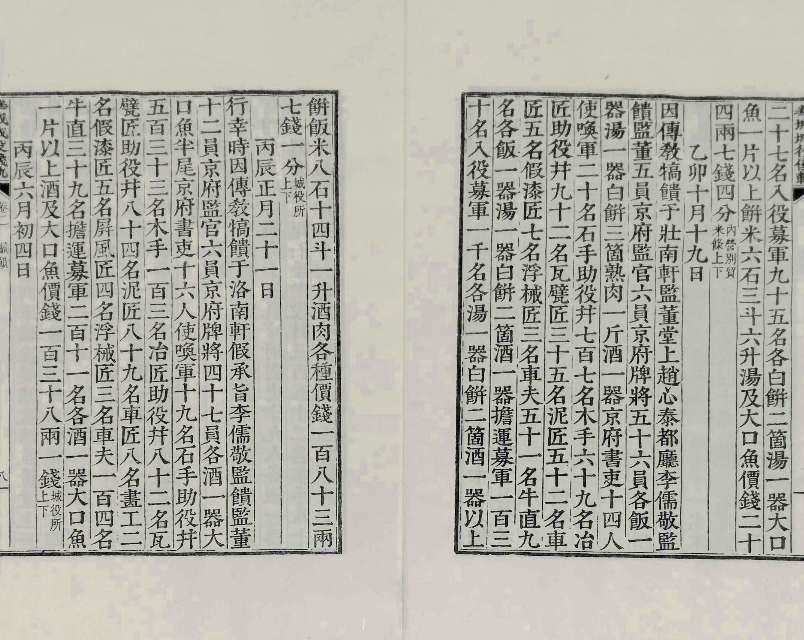 二十七名入役募軍九十五名各白餠二箇湯一器大口
魚一片以上餠米六石三斗六升湯及大口魚價錢二十
四兩七錢四分內營別貿米條上下
乙卯十月十九日
因傳敎犒饋于壯南軒監董堂上趙心泰都廳李儒敬監
饋監董五員京府監官六員京府牌將五十六員各飯一
器湯一器白餠三箇熟肉一斤酒一器京府書吏十四人
使喚軍二十名石手助役幷七百七名木手六十九名冶
匠助役幷九十二名瓦甓匠三十五名泥匠五十二名車
匠五名假漆匠七名浮械匠三名車夫五十一名牛直九
名各飯一器湯一器白餠二箇酒一器擔運募軍一百三
十名入役募軍一千名各湯一器白餠二箇酒一器以上
餠飯米八石十四斗一升酒肉各種價錢一百八十三兩
七錢一分城役所上下
丙辰正月二十一日
行幸時因傳敎犒饋于洛南軒假承旨李儒敬監饋監董
十二員京府監官六員京府牌將四十七員各酒一器大
口魚半尾京府書吏十六人使喚軍十九名石手助役幷
五百三十三名木手一百三名冶匠助役幷八十二名瓦
甓匠助役幷八十四名泥匠八十九名車匠八名畫工二
名假漆匠五名屏風匠四名浮械匠三名車夫一百四名
牛直三十九名擔運募軍二百十一名各酒一器大口魚
一片以上酒及大口魚價錢一百三十八兩一錢城役所上下
丙辰六月初四日